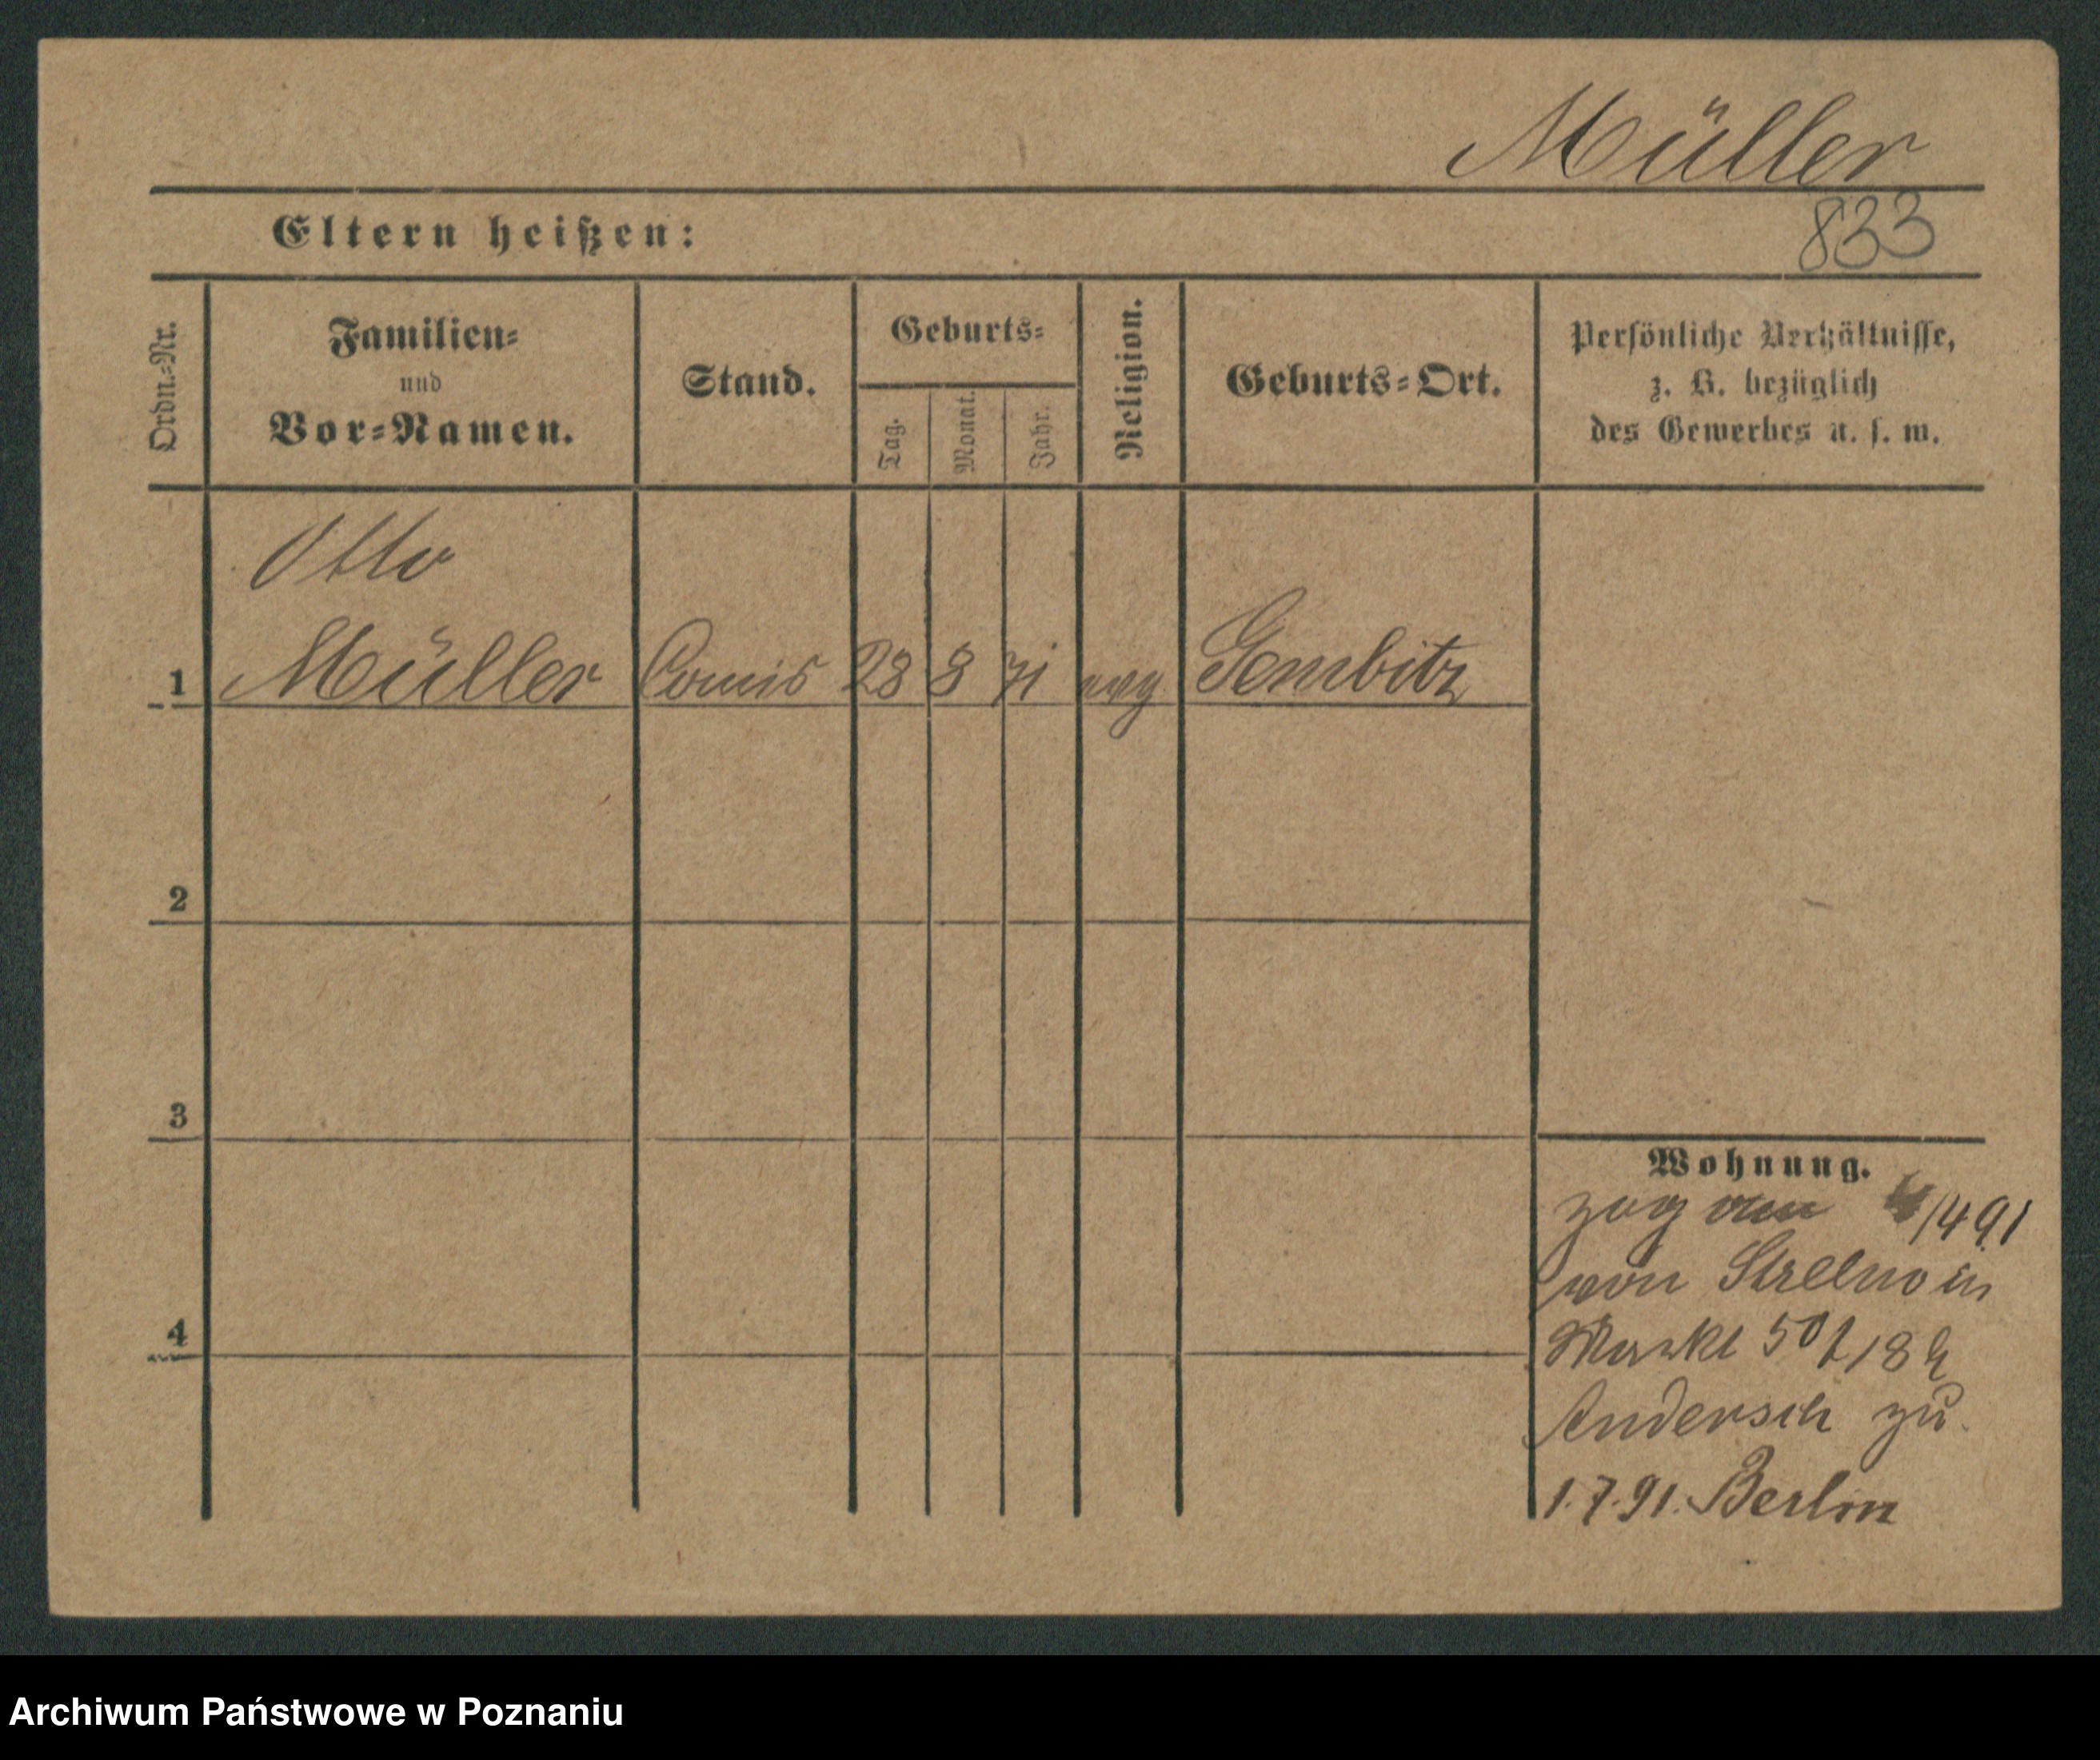 Müller
833
Eltern heißen:
Ordn.-Nr.
Familien-
und
Vor-Namen.
Stand.
Geburts-
Tag.
Monat.
Jahr.
Religion.
Geburts-Ort.
Persönliche Verhältnisse,
z. B. bezüglich
des Gewerbes u. s. w.
Otto
1 Müller Comis 28 8 71 evg Gembitz
2
3
4
Wohnung.
zog am /4 91
von Strelno in
Markt 50
Andersch zu
1.7.91. Berlin
Archiwum Państwowe w Poznaniu